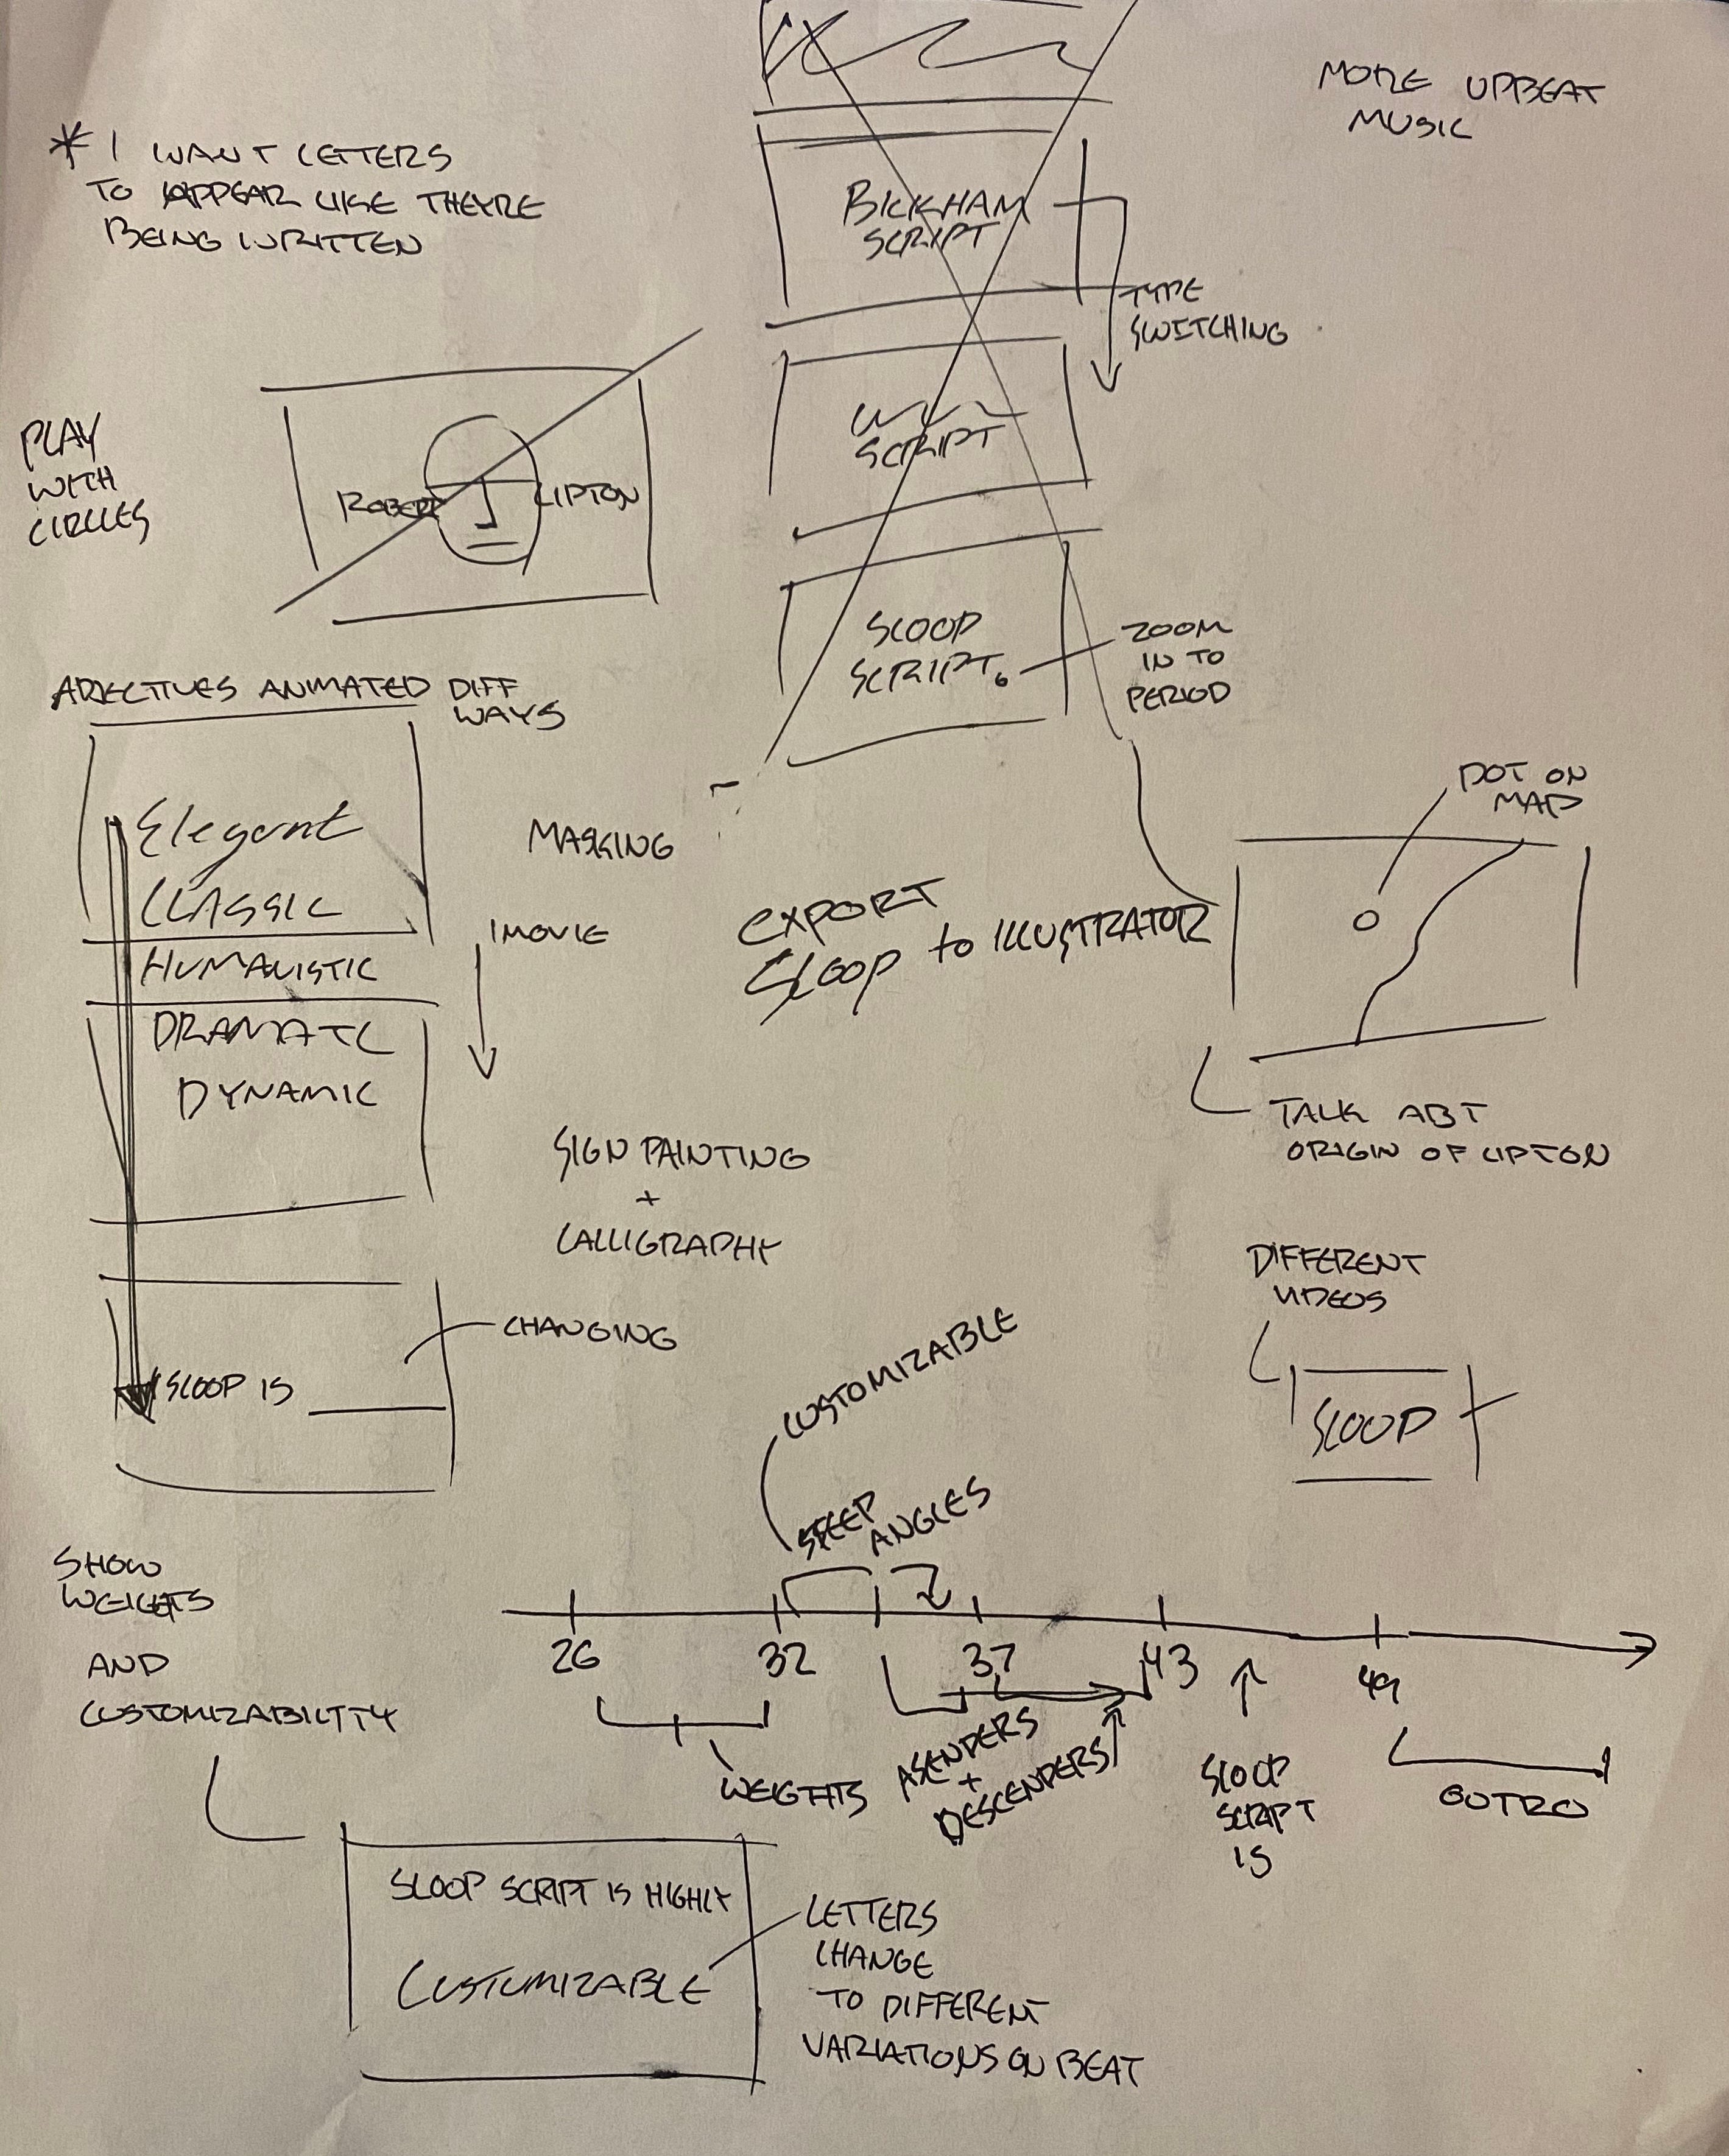 MORE UPBEAT
MUSIC
* I WANT LETTERS
TO APPEAR LIKE THEYRE
BEING WRITTEN
BICKHAM
SCRIPT
TYPE
SWITCHING
SCRIPT
PLAY
WITH
CIRCLES
ROBERT LIPTON
SLOOP
SCRIPT.
ZOOM
IN TO
PERIOD
ADJECTIVES ANIMATED DIFF
WAYS
Elegant
CLASSIC
HUMANISTIC
DRAMATC
DYNAMIC
MASKING
IMOVIE
SIGN PAINTING
+
CALLIGRAPHY
EXPORT
SLOOP to ILLUSTRATOR
DOT ON
MAP
TALK ABT
ORIGIN OF LIPTON
CHANGING
SLOOP IS ______
DIFFERENT
VIDEOS
SLOOP
CUSTOMIZABLE
STEEP
ANGLES
SHOW
WEIGHTS
AND
CUSTOMIZABILITY
26 32 37 43 49
WEIGHTS
ASENDERS
+
DESCENDERS
SLOOP
SCRIPT
IS
OUTRO
SLOOP SCRIPT IS HIGHLY
CUSTOMIZABLE
LETTERS
CHANGE
TO DIFFERENT
VARIATIONS ON BEAT